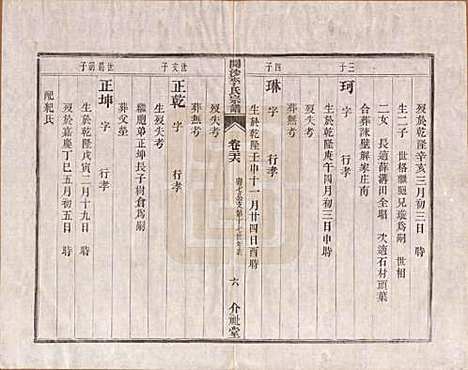 三子
珂 字 行孝
生於乾隆庚午四月初三日申時
歿於乾隆辛亥三月初三日 時
合葬
解家庄南
二子 世格繼兄 為嗣 世相
二女 長適薛溝田全唱 次適石村頭葉
四子
琳 字 行孝
生於乾隆壬申十一月廿四日酉時
歿失考
葬無考
開沙李氏宗譜
卷六
六 介祉堂
世文子
正乾 字 行孝
生歿失考
葬無考
繼胞弟正坤長子樹倉為嗣
世爵嗣子
正坤 字 行孝
葬父塋
生於乾隆戊寅二月十九日 時
歿於嘉慶丁巳五月初五日 時
配 氏